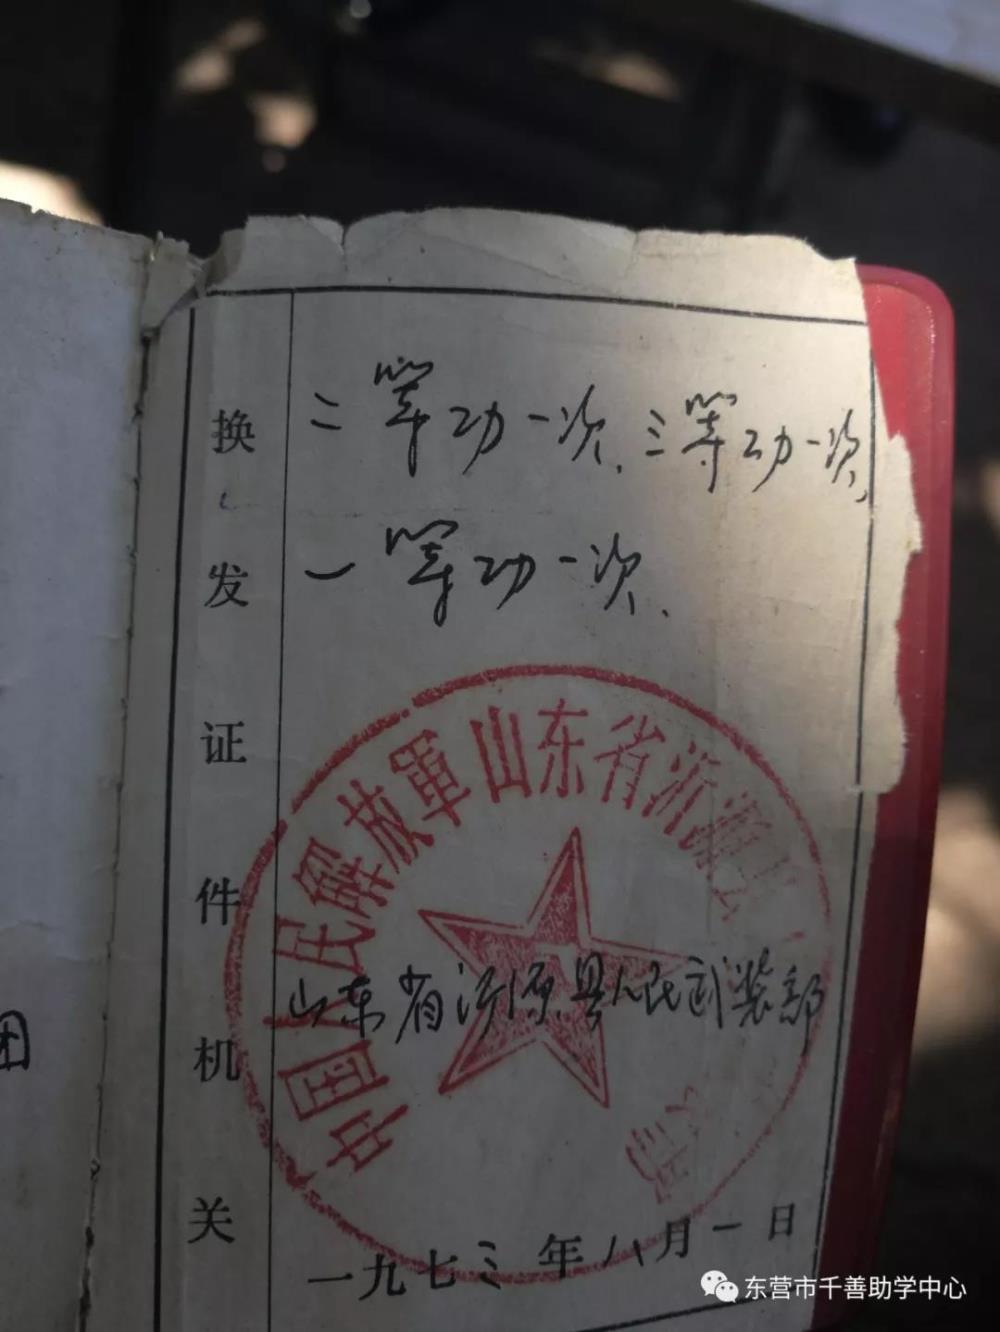 换发证件机关
二等功一次、三等功一次、
一等功一次、
中国人民解放軍山东省沂源县
山东省沂源县人民武装部
一九七三年八月一日
团
东营市千善助学中心